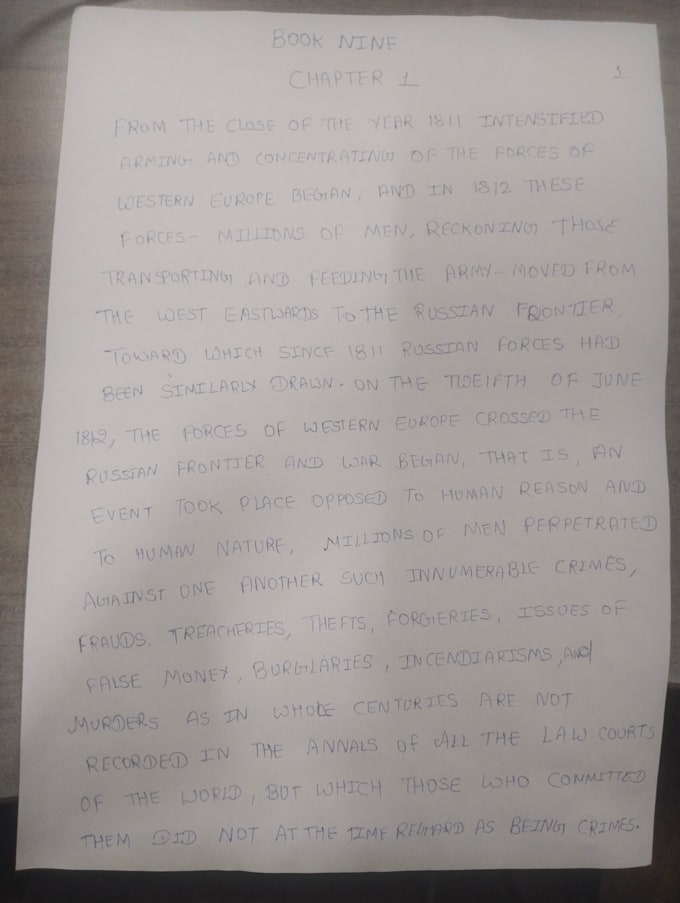 BOOK NINE
CHAPTER 1
1
FROM THE CLOSE OF THE YEAR 1811 INTENSIFIED
ARMING AND CONCENTRATING OF THE FORCES OF
WESTERN EUROPE BEGAN, AND IN 1812 THESE
FORCES- MILLIONS OF MEN, RECKONING THOSE
TRANSPORTING AND FEEDING THE ARMY- MOVED FROM
THE WEST EASTWARDS TO THE RUSSIAN FRONTIER,
TOWARD WHICH SINCE 1811 RUSSIAN FORCES HAD
BEEN SIMILARLY DRAWN. ON THE TWElFTH OF JUNE
1812, THE FORCES OF WESTERN EUROPE CROSSED THE
RUSSIAN FRONTIER AND WAR BEGAN, THAT IS, AN
EVENT TOOK PLACE OPPOSED TO HUMAN REASON AND
TO HUMAN NATURE. MILLIONS OF MEN PERPETRATED
AGAINST ONE ANOTHER SUCH INNUMERABLE CRIMES,
FRAUDS. TREACHERIES, THEFTS, FORGERIES, ISSUES OF
FALSE MONEY, BURGLARIES, INCENDIARISMS, And
MURDERS AS IN WHOLE CENTURIES ARE NOT
RECORDED IN THE ANNALS OF ALL THE LAW COURTS
OF THE WORLD, BUT WHICH THOSE WHO COMMITTED
THEM DID NOT AT THE TIME REGARD AS BEING CRIMES.